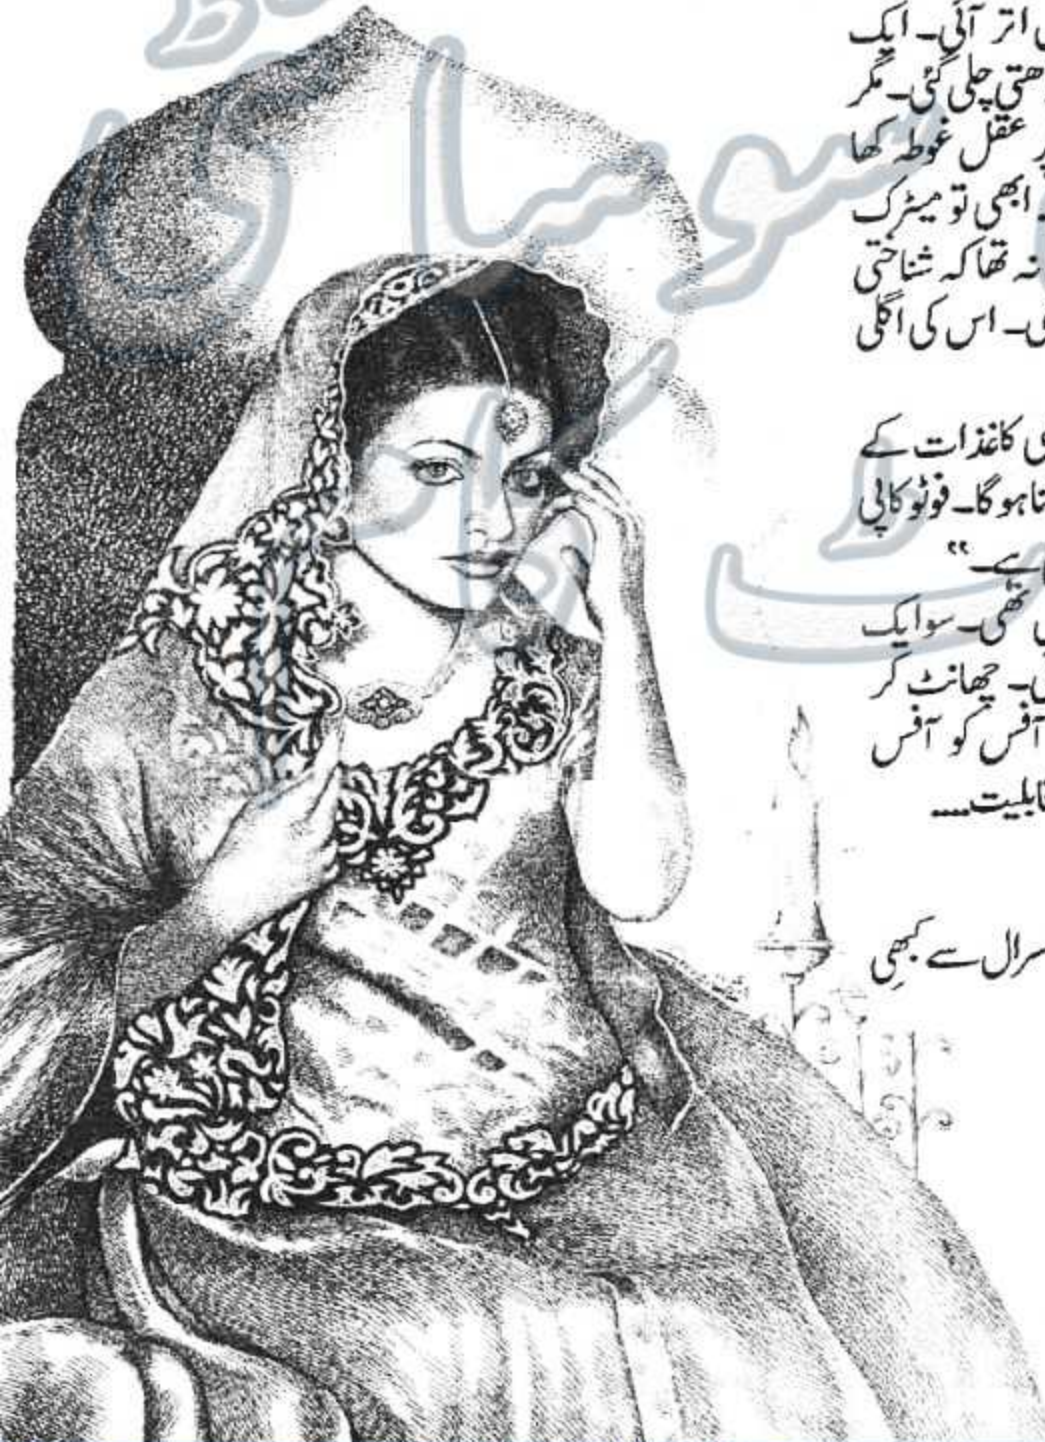 اتر آئی۔ ایک
چلی گئی۔ مگر
عقل غوطہ کھا
ابھی تو میٹرک
نہ تھا کہ شناختی
اس کی اگلی
کاغذات کے
ہوگا۔ فوٹو کاپی
ہے۔"
تھی۔ سو ایک
چھانٹ کر
آفس کو آفس
سے کبھی